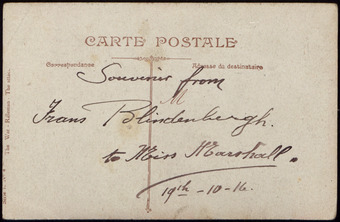 CARTE POSTALE
Correspondance
Adresse du destinataire
Souvenir from
M
Frans Blindenbergh.
to Miss Marshall.
19th-10-16.